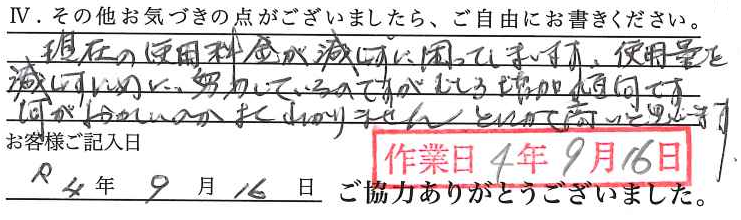 Ⅳ．その他お気づきの点がございましたら、ご自由にお書きください。
現在の使用料金が減らずに困ってしまいます、使用量を
減らすために、努力しているのですがむしろ増加傾向です
何がおかしいのかよくわかりません とにかく高いと思います
お客様ご記入日
作業日 4年 9月16日
R 4 年 9 月 16 日 ご協力ありがとうございました。